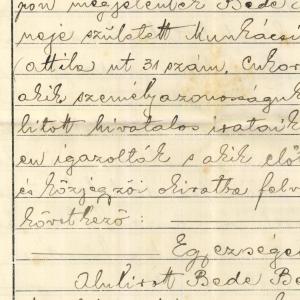 pon megjelentek Bede
neje született Munkácsi
(Attila ut 31 szám, cukor
akik személyazonosságuk
bitott hivatalos irataik
en igazolták s akik elő
és közjegyzői okiratba felv
következő:
Egyezsége
Alulirott Bede Be